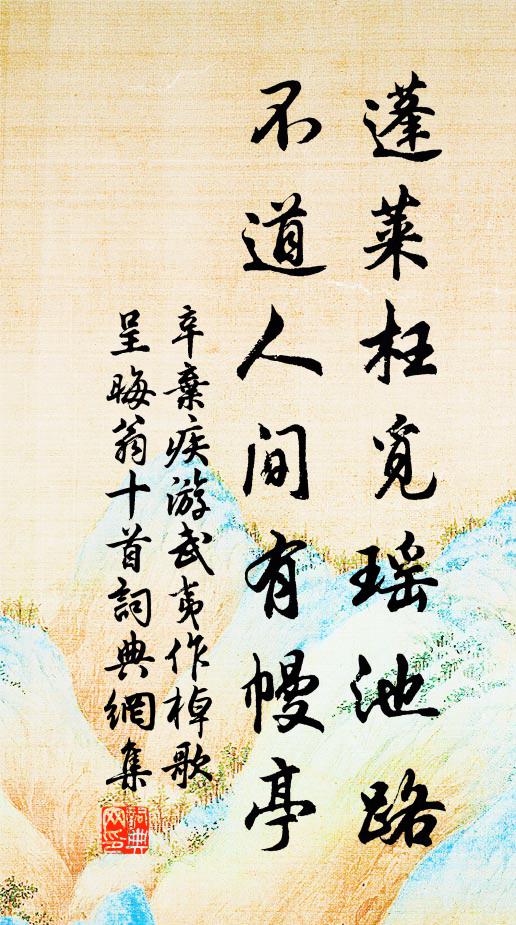 蓬莱枉觅瑶池路
不道人间有幔亭
辛棄疾游武夷作棹歌
呈晦翁十首詞典網集
詞典网印